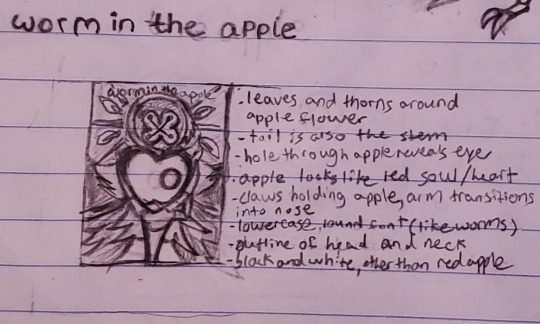 worm in the apple
worm in the apple
- leaves and thorns around
apple flower
- tail is also the stem
- hole through apple reveals eye
- apple looks like red soul/heart
- claws holding apple, arm transitions
into nose
- lowercase, round font (like worms)
- outline of head and neck
- black and white, other than red apple